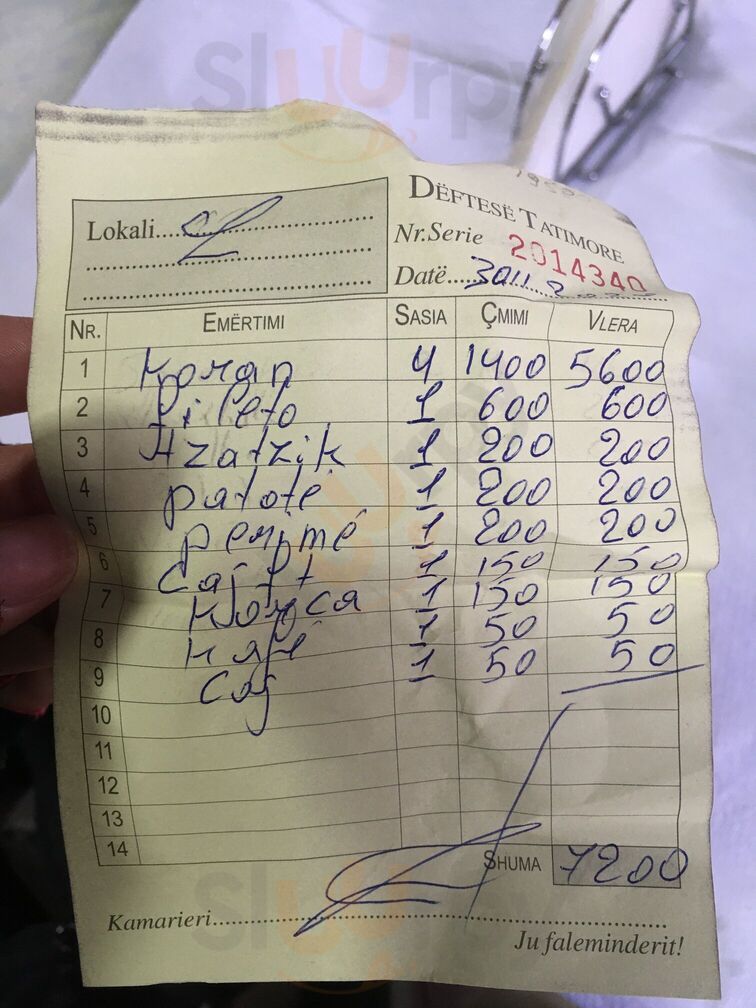 Slurpy
DËFTESË TATIMORE
Lokali
Nr.Serie 2014340
Datë 30.11.2
NR. EMËRTIMI SASIA ÇMIMI VLERA
1 Koran 4 1400 5600
2 Pileto 1 600 600
3 Xzatzik 1 200 200
4 patate 1 200 200
5 perimé 1 200 200
6 Caj ft 1 150 150
7 Korça 1 150 150
8 Kafé 1 50 50
9 Caj 1 50 50
10
11
12
13
14
SHUMA 7200
Kamarieri
Ju faleminderit!